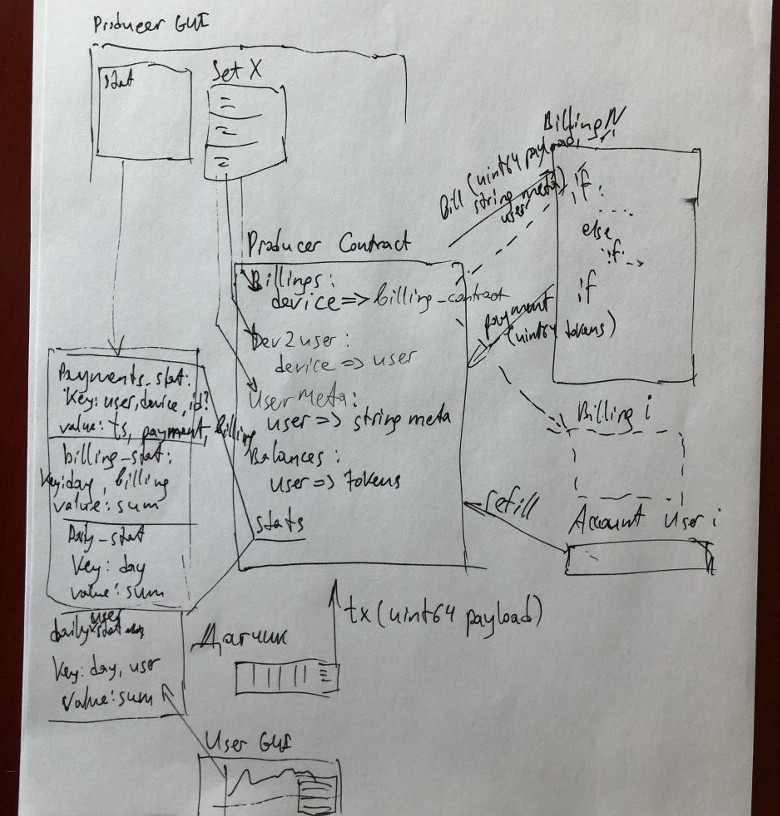 Producer GUI
stat
Set X
Billing N
Bill (uint64 payload,
string meta)
user
if:
else
if
if
Producer Contract
Billings:
device => billing_contract
Dev2user:
device => user
UserMeta:
user => string meta
Balances:
user => tokens
stats
payment
(uint64 tokens)
Payments_stat:
Key: user, device, id?
value: ts, payment, billing
billing_stat:
Key: day, billing
value: sum
Daily_stat
Key: day
value: sum
user
daily stat
Key: day, user
value: sum
Billing i
refill
Account User i
Датчик
tx (uint64 payload)
User GUI